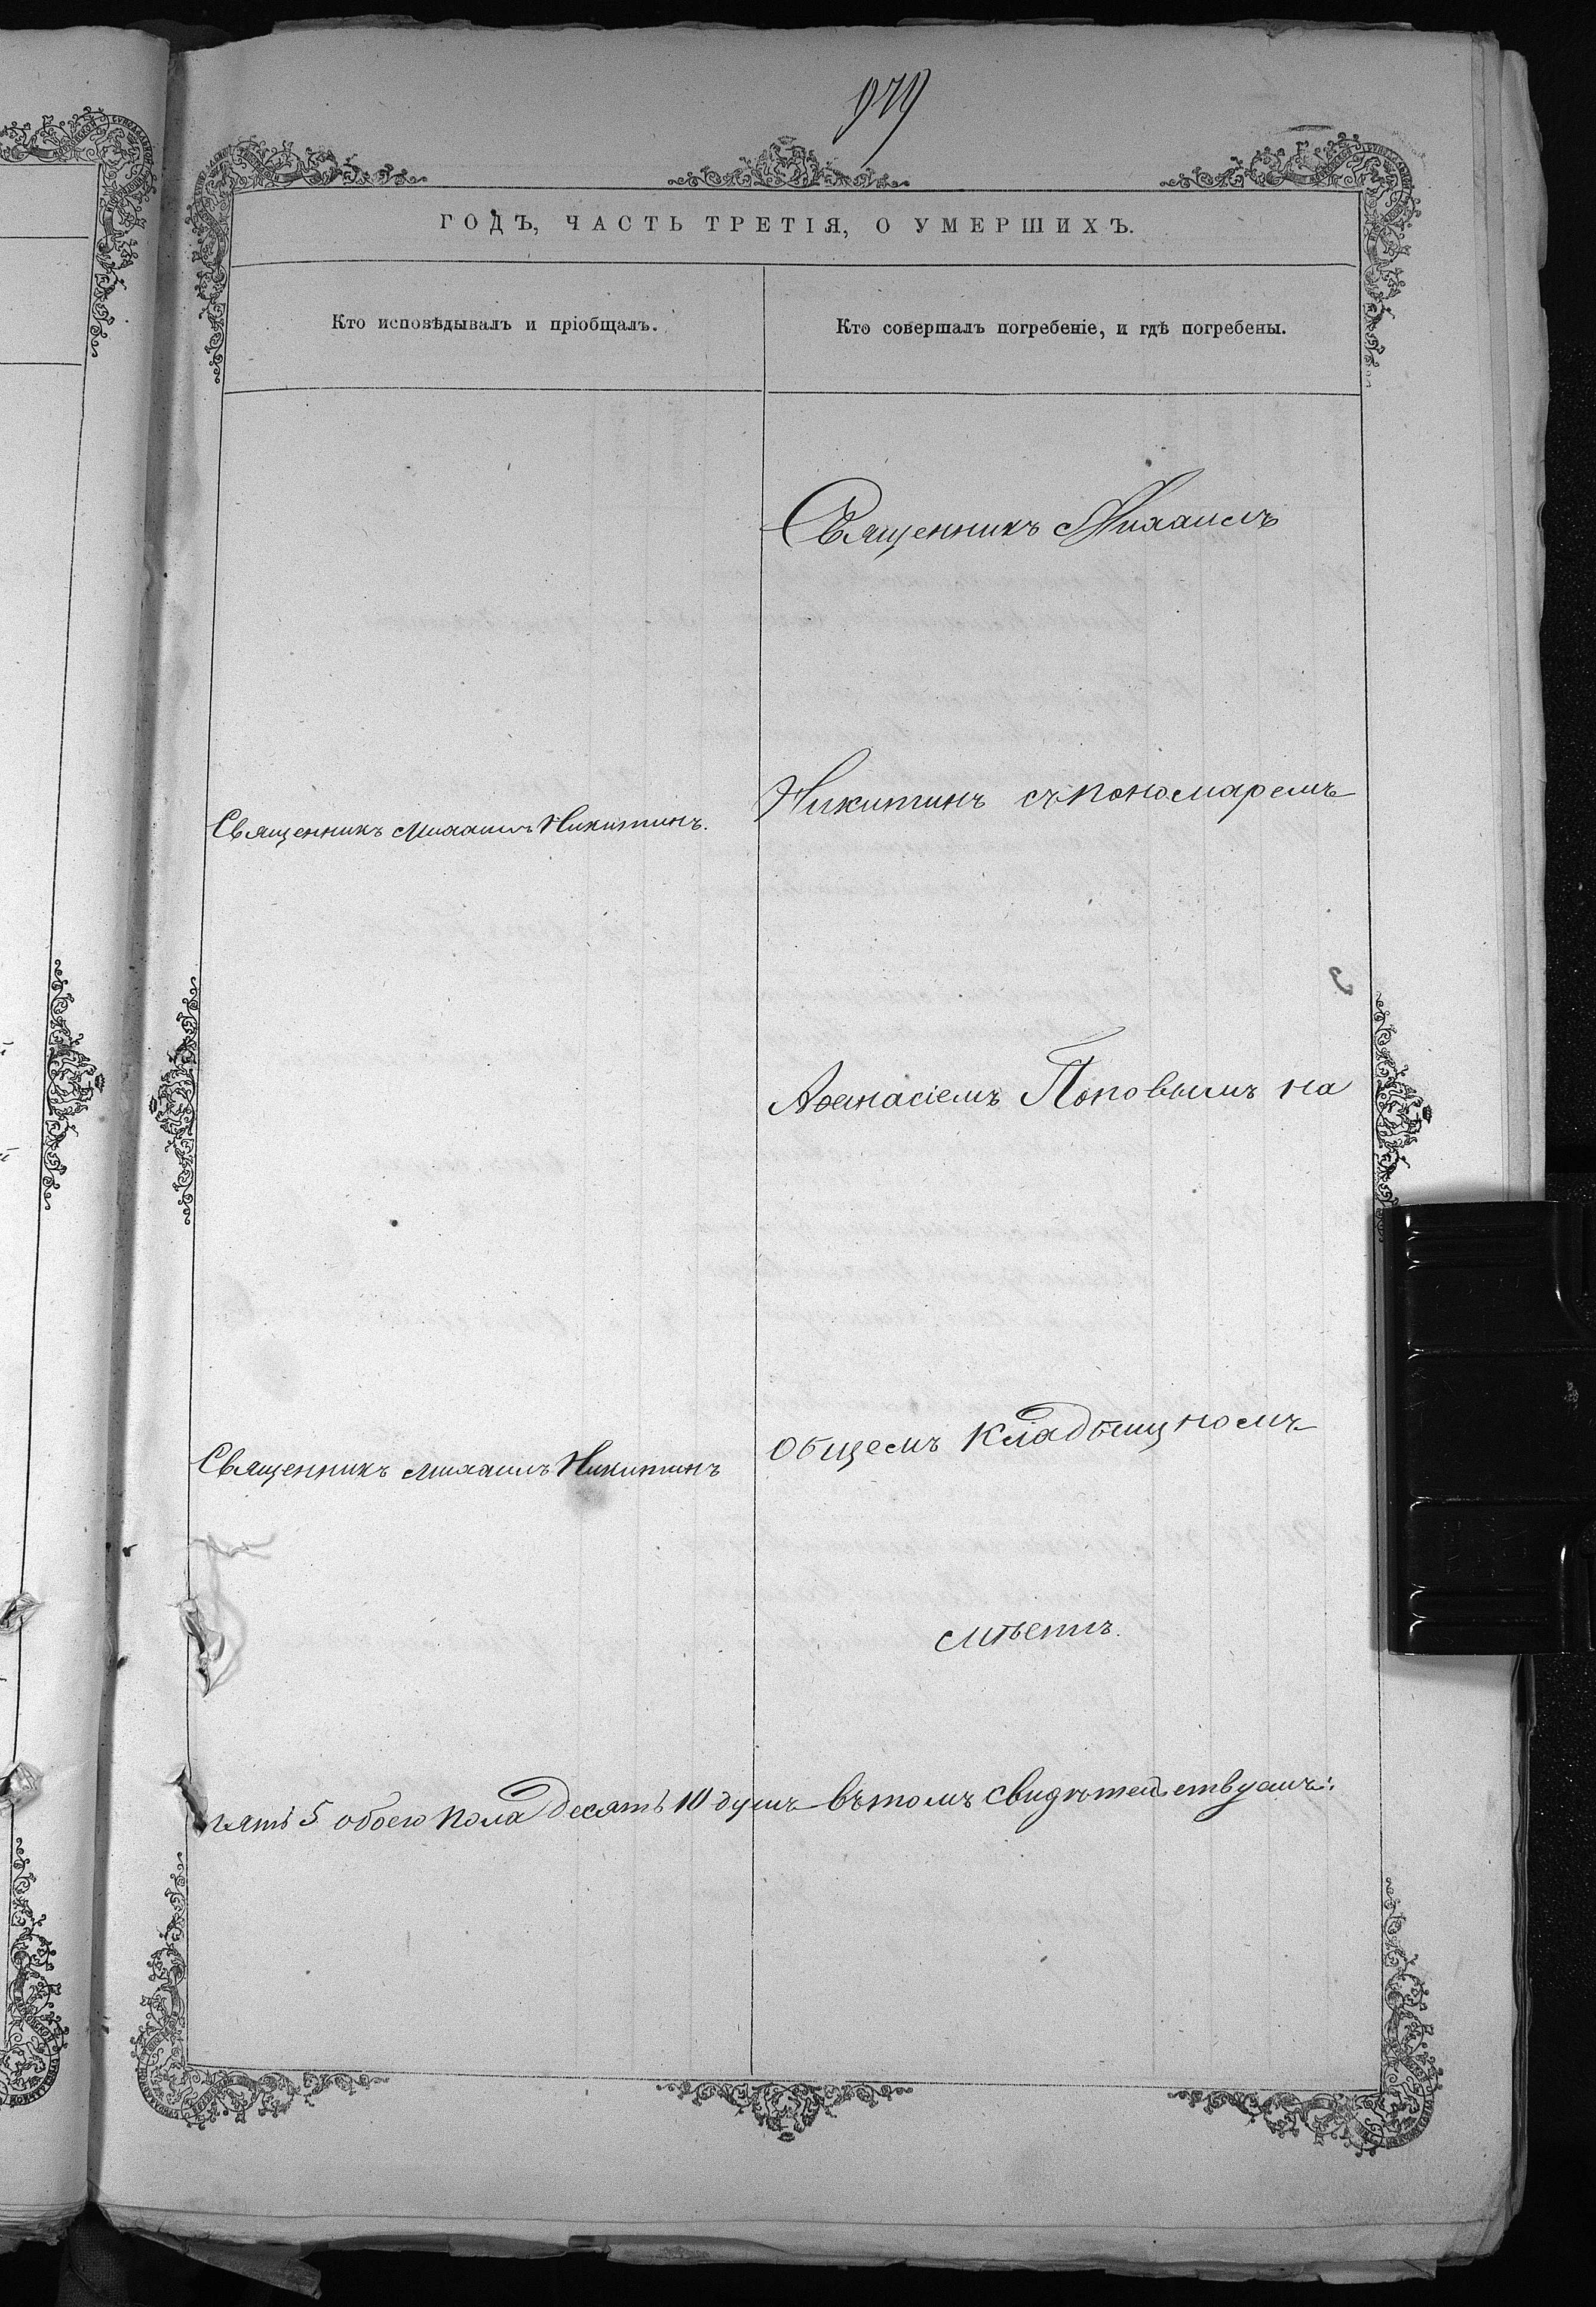 979
ГОДЪ, ЧАСТЬ ТРЕТІЯ, О УМЕРШИХЪ.
Кто исповѣдывалъ и пріобщалъ.
Кто совершалъ погребеніе, и гдѣ погребены.
Священникъ Михаилъ
Никитинъ съ пономаремъ
Священникъ Михаилъ Никитинъ.
Аѳанасіемъ Поповымъ на
общемъ кладбищномъ
Священникъ Михаилъ Никитинъ
мѣстѣ.
пять 5 обоего пола десять 10 душъ въ томъ свидѣтельствуемъ: